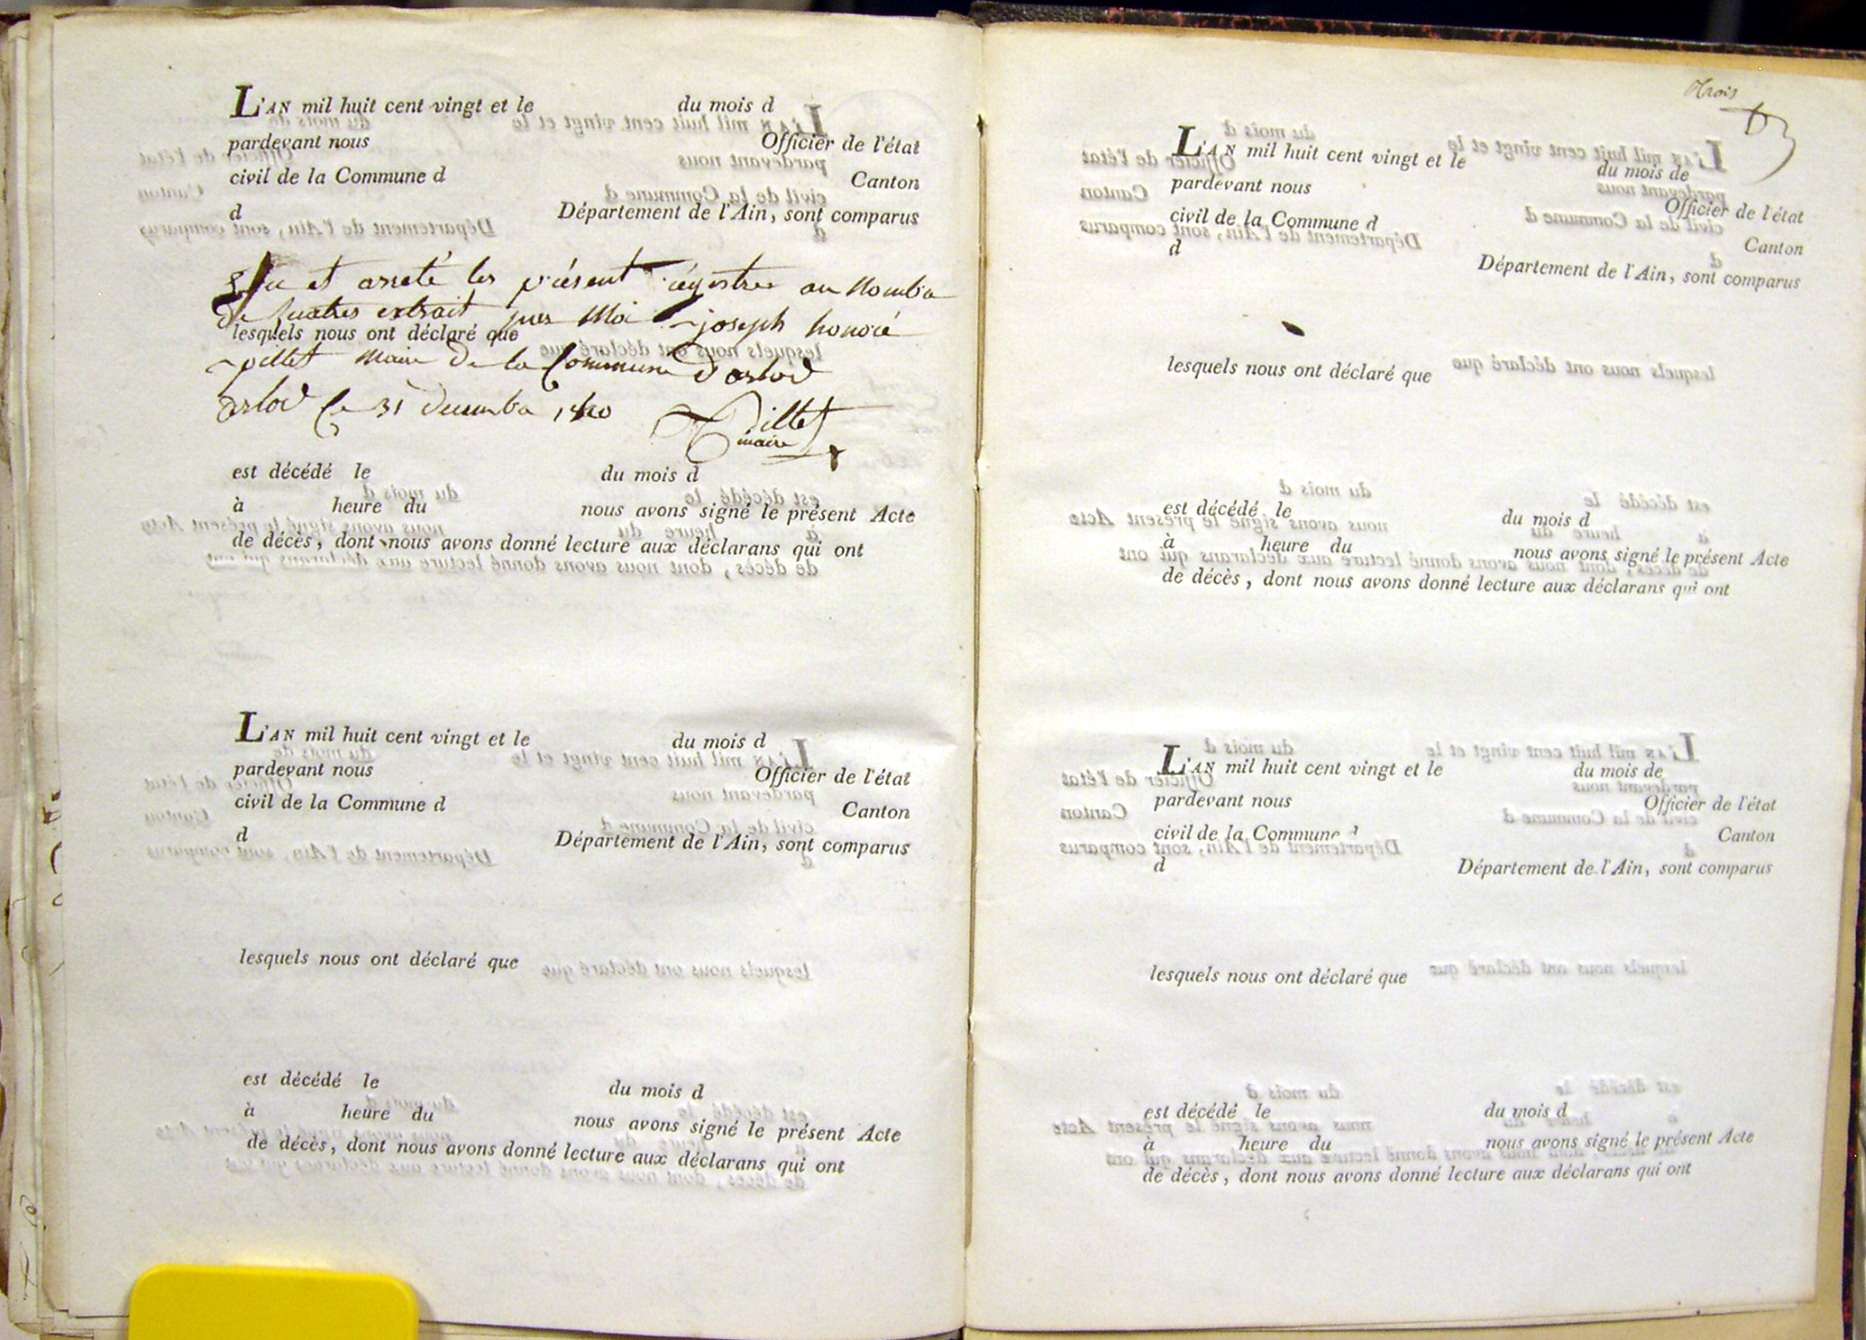 L'AN mil huit cent vingt et le du mois d
pardevant nous Officier de l'état
civil de la Commune d Canton
d Département de l'Ain, sont comparus
et arreté les présent régistres au Nombre
de quatres extrait par Moi joseph honoré
lesquels nous ont déclaré que
pillet Maire De la Commune D'arlod
arlod Ce 31 Decembre 1820 Pillet
maire
est décédé le du mois d
à heure du nous avons signé le présent Acte
de décès, dont nous avons donné lecture aux déclarans qui ont
L'AN mil huit cent vingt et le du mois d
pardevant nous Officier de l'état
civil de la Commune d Canton
d Département de l'Ain, sont comparus
lesquels nous ont déclaré que
est décédé le du mois d
à heure du nous avons signé le présent Acte
de décès, dont nous avons donné lecture aux déclarans qui ont
trois
L'AN mil huit cent vingt et le du mois de
pardevant nous Officier de l'état
civil de la Commune d Canton
d Département de l'Ain, sont comparus
lesquels nous ont déclaré que
est décédé le du mois d
à heure du nous avons signé le présent Acte
de décès, dont nous avons donné lecture aux déclarans qui ont
L'AN mil huit cent vingt et le du mois de
pardevant nous Officier de l'état
civil de la Commune d Canton
d Département de l'Ain, sont comparus
lesquels nous ont déclaré que
est décédé le du mois d
à heure du nous avons signé le présent Acte
de décès, dont nous avons donné lecture aux déclarans qui ont